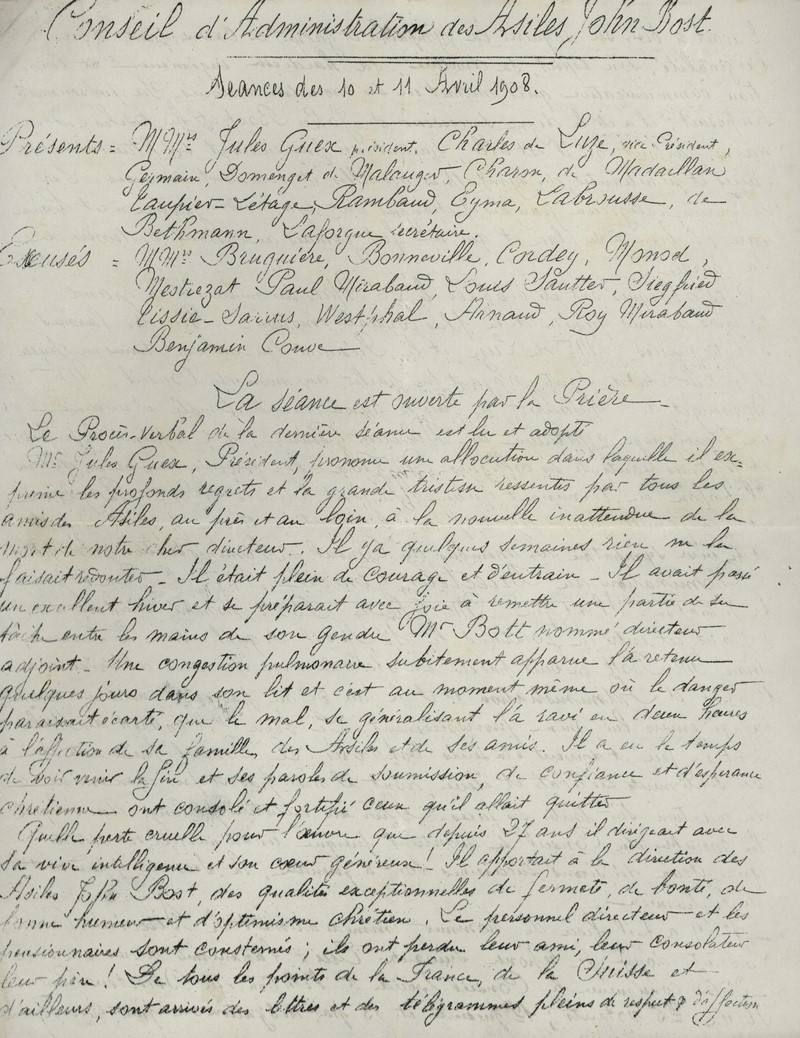 Conseil d'Administration des Asiles John Bost.
Séances des 10 et 11 Avril 1908.
Présents = MMrs Jules Guex président, Charles de Luze, vice-Président,
Geymain, Domenget de Malauger, Charon, de Madaillan
Laupier-Létage, Rambaud, Eyma, Labrousse, de
Bethmann, Laforgue secrétaire.
Excusés = MMrs Bruguière, Bonneville, Cordey, Monod,
Mestrezat Paul Mirabaud, Louis Sautter, Siegfried
Tissié-Sarrus, Westphal, Arnaud, Roy Mirabaud
Benjamin Couve
La séance est ouverte par la Prière -
Le Procès-Verbal de la dernière séance est lu et adopté
Mr Jules Guex, Président, prononce une allocution dans laquelle il ex=
prime les profonds regrets et la grande tristesse ressentis par tous les
amis des Asiles, au près et au loin, à la nouvelle inattendue de la
mort de notre cher directeur. Il y a quelques semaines rien ne la
faisait redouter - Il était plein de courage et d'entrain - Il avait passé
un excellent hiver et se préparait avec joie à remettre une partie de sa
tâche entre les mains de son gendre Mr Bott nommé directeur
adjoint - Une congestion pulmonaire subitement apparue l'a retenu
quelques jours dans son lit et c'est au moment même où le danger
paraissait écarté, que le mal, se généralisant l'a ravi en deux heures
à l'affection de sa famille, des Asiles et de ses amis. Il a eu le temps
de voir venir la fin et ses paroles de soumission, de confiance et d'espérance
chrétienne ont consolé et fortifié ceux qu'il allait quitter
Quelle perte cruelle pour l'œuvre que depuis 27 ans il dirigeait avec
sa vive intelligence et son cœur généreux! Il apportait à la direction des
Asiles John Bost, des qualités exceptionnelles de fermeté, de bonté, de
bonne humeur et d'optimisme chrétien. Le personnel directeur et les
pensionnaires sont consternés; ils ont perdu leur ami, leur consolateur
leur père! De tous les points de la France, de la Suisse et
d'ailleurs, sont arrivés des lettres et des télégrammes pleins de respect & d'affection